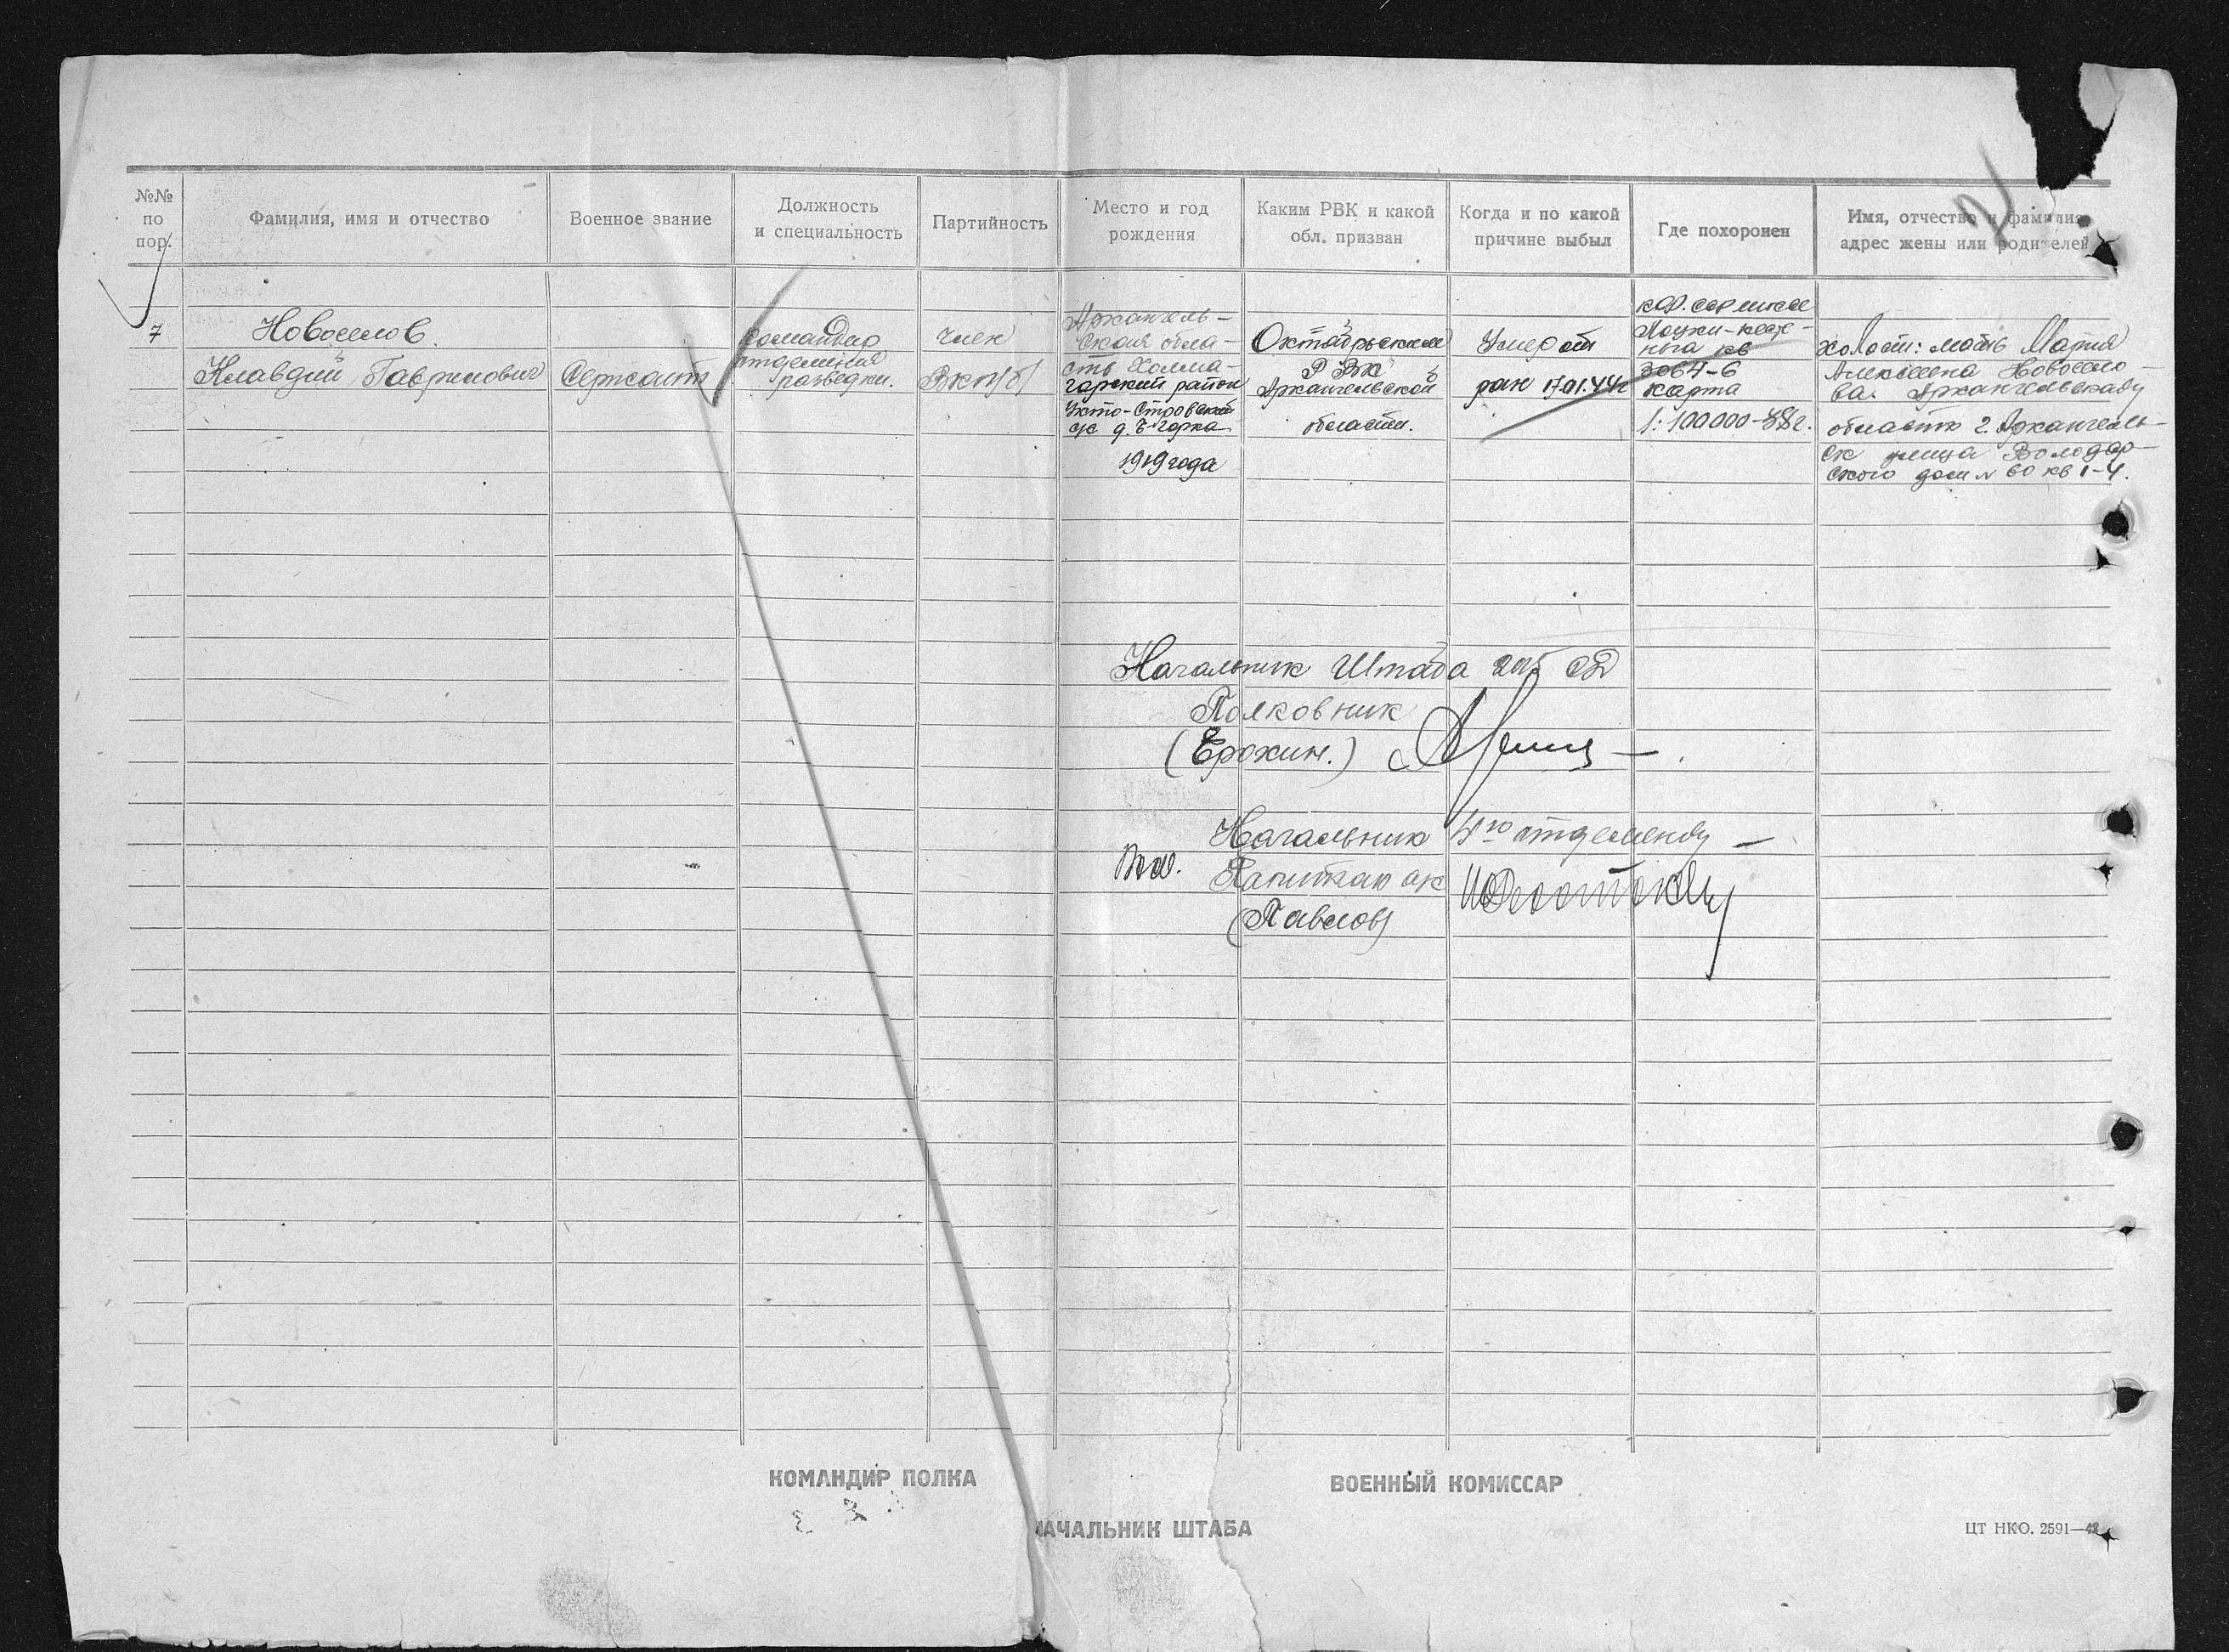 №№ по пор.
Фамилия, имя и отчество
Военное звание
Должность и специальность
Партийность
Место и год рождения
Каким РВК и какой обл. призван
Когда и по какой причине выбыл
Где похоронен
Имя, отчество и фамилия, адрес жены или родителей
7
Новоселов.
Клавдий Гаврилович
Сержант
Командир
отделения
разведки.
Член
ВКП(б)
Архангель-
ская обла-
сть Холмо-
горский район
Ухто-Стровский
с/с д. Б-Горка
1919 года
Октябрьским
РВК
Архангельской
области.
Умер от
ран 17.01.44г
Лоухи-
кв
3064-6
карта
1:100000-
холост: мать Мария
Новосело-
ва.
область г. Архангель-
ск улица Володар-
ского дом № 60 кв 1-4.
Начальник Штаба СД
Полковник
(Ерохин.)
Начальник 4го
Капитан
(Павлов)
КОМАНДИР ПОЛКА
ВОЕННЫЙ КОМИССАР
НАЧАЛЬНИК ШТАБА
ЦТ НКО. 2591—42